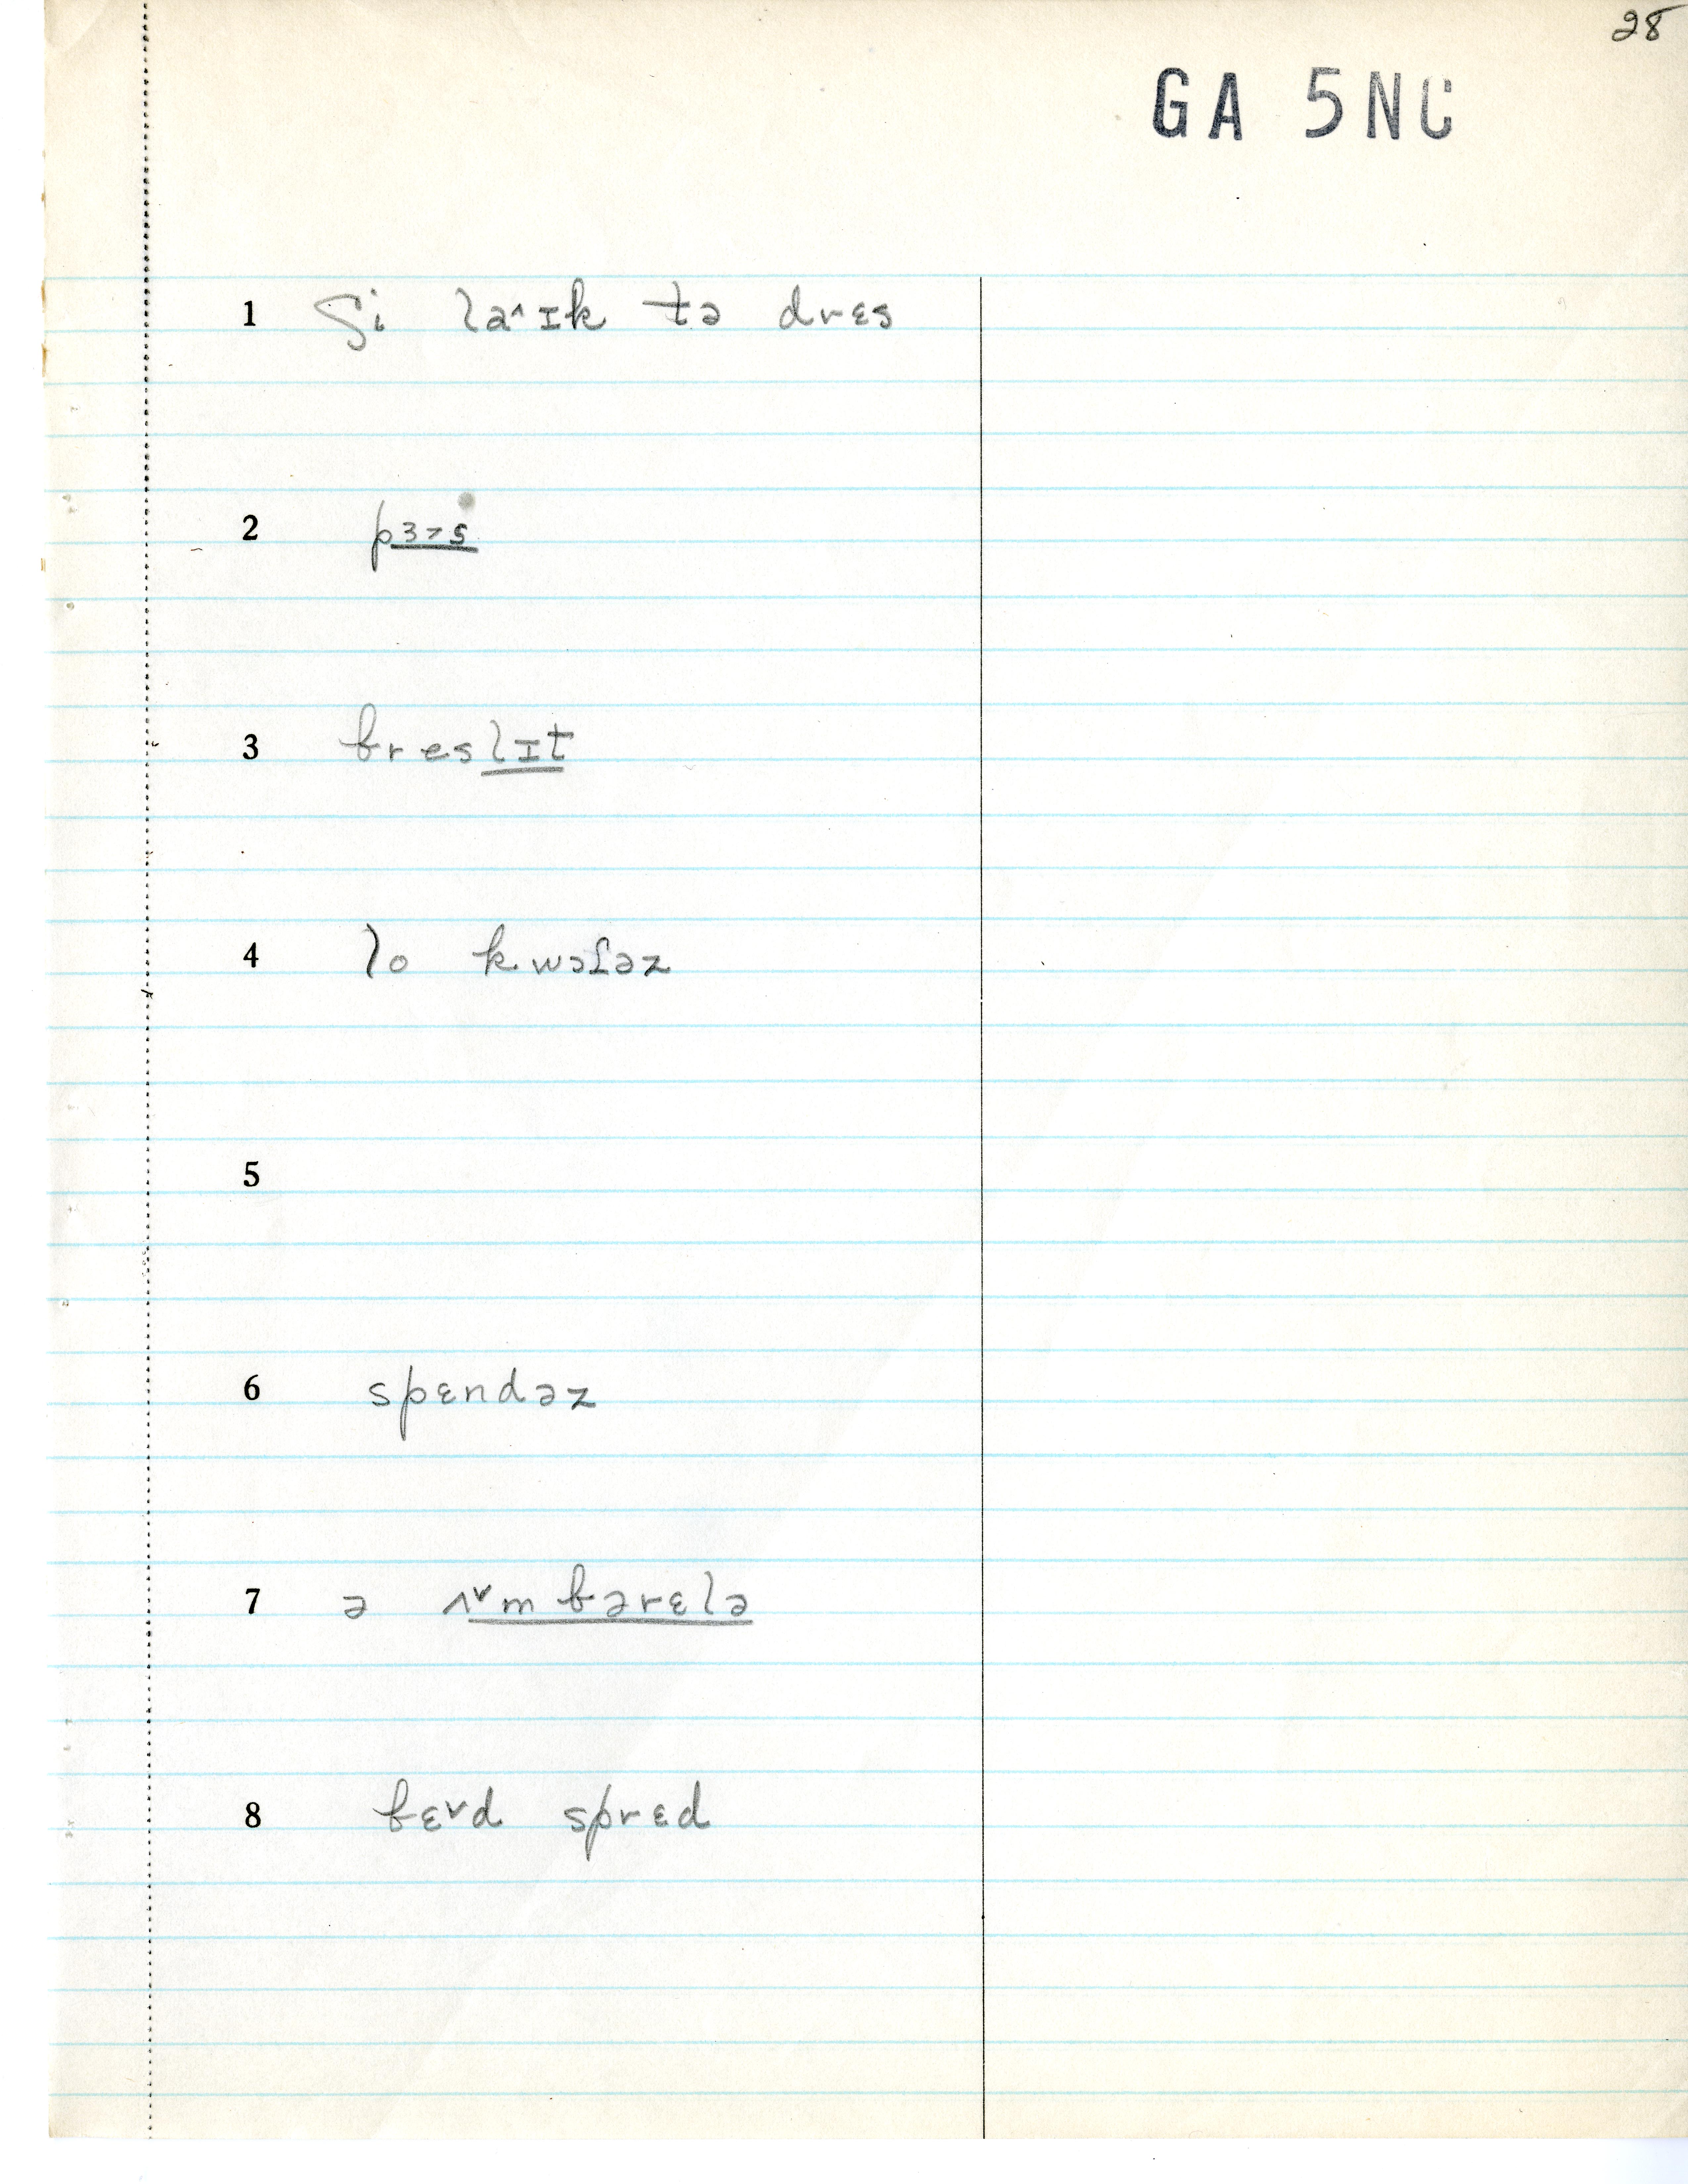 28
GA 5NC
1 ʃi laˆɪk tə drɛs
2 pɜɚs
3 breslɪt
4 lo kwɔləz
5
6 spɛndəz
7 ə ʌˇmbərɛlə
8 bɛˇd sprɛd